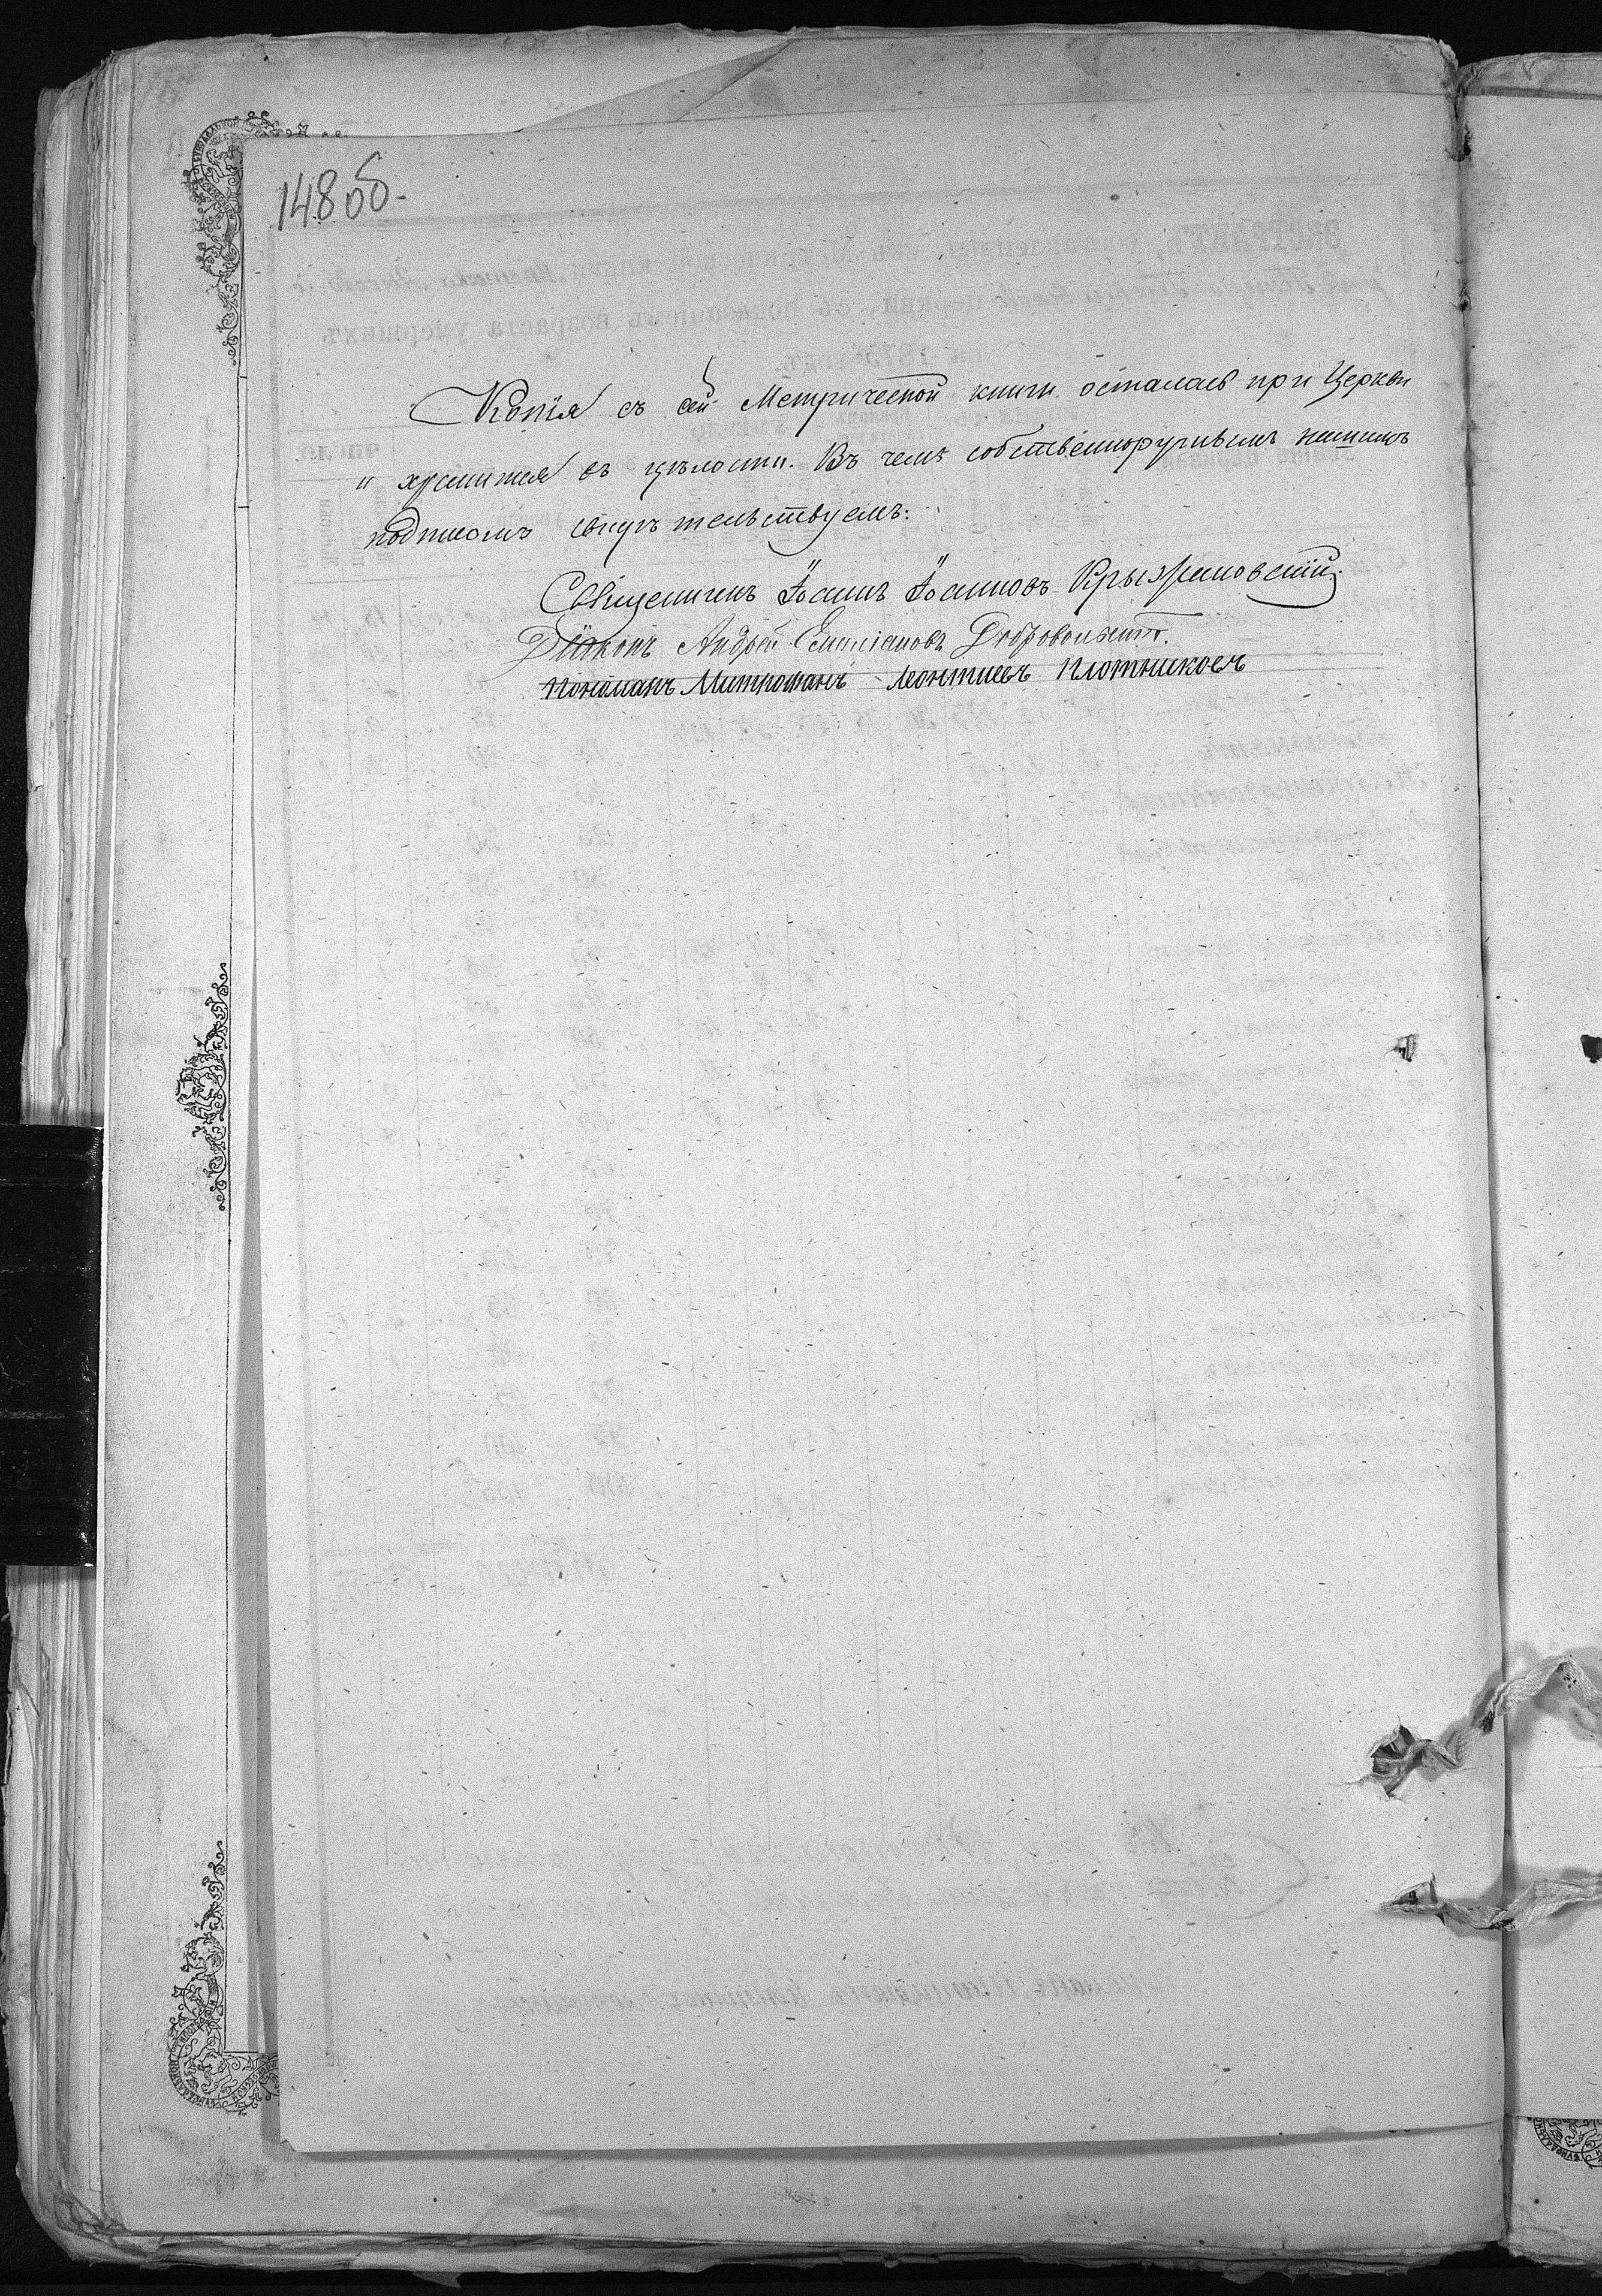 148об-
Копія съ сей Метрической книги осталась при Церкви
и хранится въ цѣлости. Въ чемъ собственноручнымъ нашимъ
подписомъ свидѣтельствуемъ:
Священникъ Іоаннъ Іоанновъ Крыжановскій.
Діаконъ Андрей Емиліановъ Добровольскій.
Пономарь Митрофанъ Леонтиевъ Плотниковъ